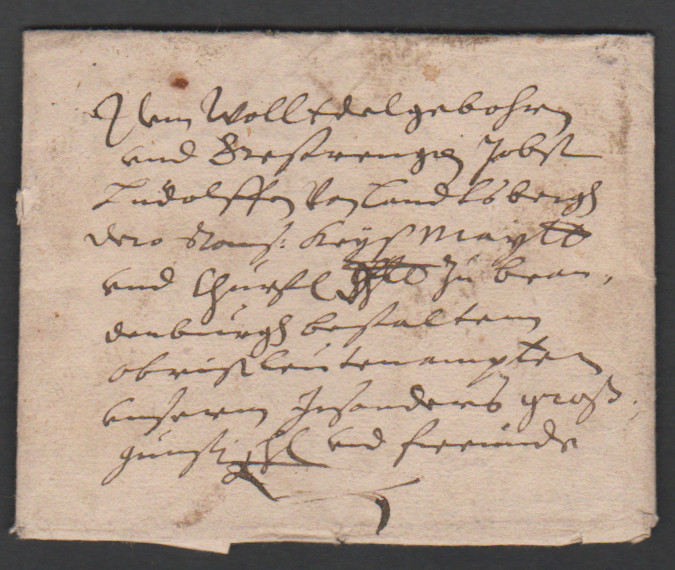 Dem WollEdelgebohren
und Gestrengen Jobst
Ludolffen von Landtsbergh
dero Röm: Keyß Maytt
und Churfl zu bran,
denburgh bestaltem
obristleutenampten
unserm Insonders groß
günst und freunde